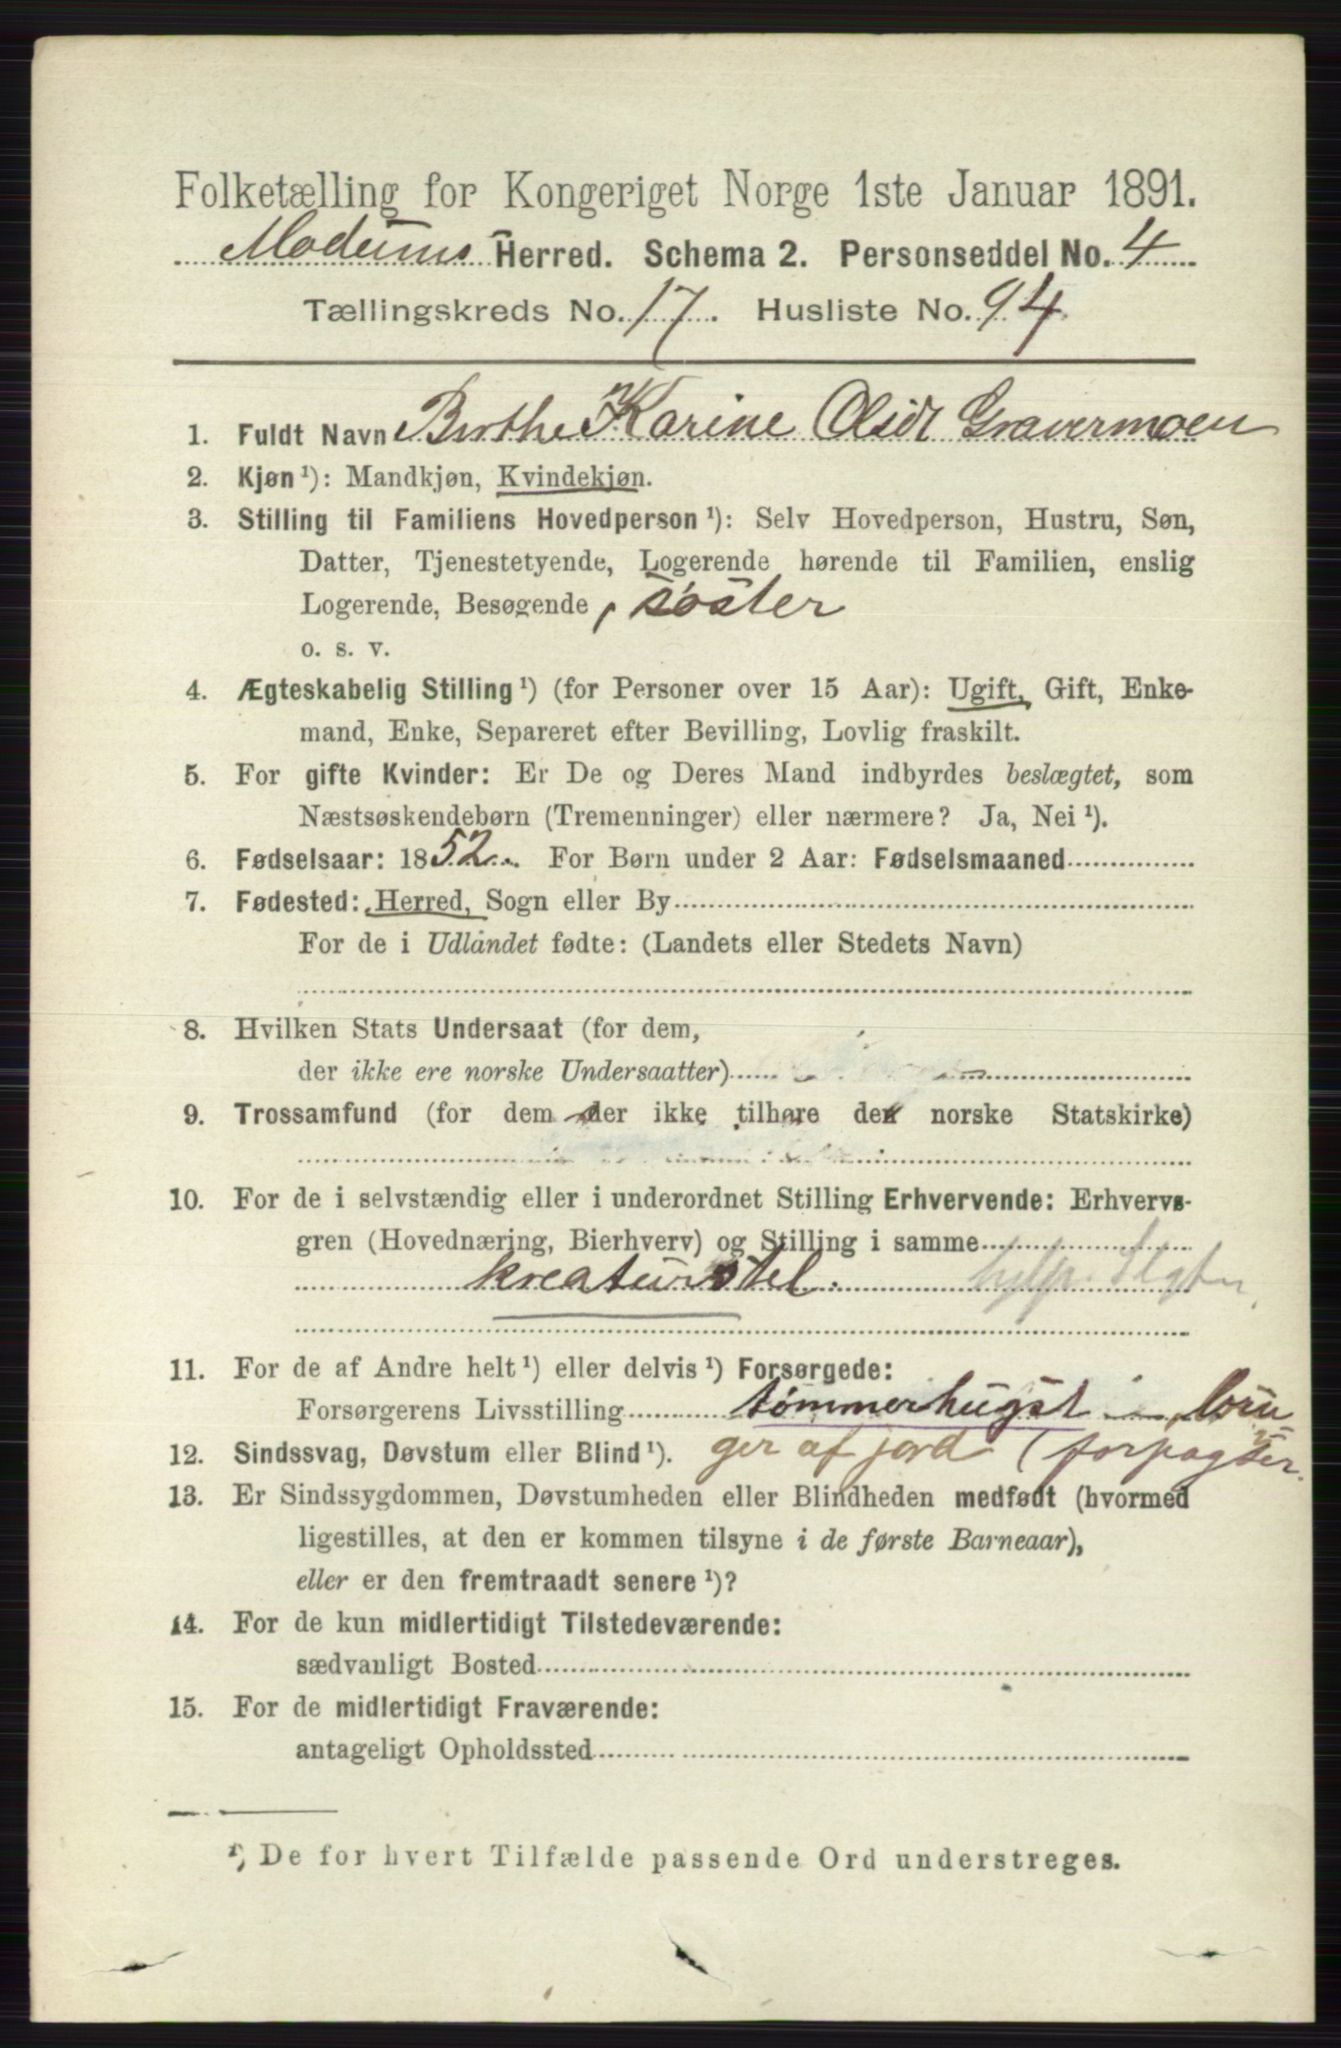 Folketælling for Kongeriget Norge 1ste Januar 1891.
Modums Herred. Schema 2. Personseddel No. 4
Tællingskreds No. 17. Husliste No. 94.
1. Fuldt Navn Berthe Karine Olsdt Gravermoen
2. Kjøn ¹): Mandkjøn, Kvindekjøn.
3. Stilling til Familiens Hovedperson ¹): Selv Hovedperson, Hustru, Søn,
Datter, Tjenestetyende, Logerende hørende til Familien, enslig
Logerende, Besøgende, søster
o. s. v.
4. Ægteskabelig Stilling ¹) (for Personer over 15 Aar): Ugift, Gift, Enke-
mand, Enke, Separeret efter Bevilling, Lovlig fraskilt.
5. For gifte Kvinder: Er De og Deres Mand indbyrdes beslægtet, som
Næstsøskendebørn (Tremenninger) eller nærmere? Ja, Nei ¹).
6. Fødselsaar: 1852. For Børn under 2 Aar: Fødselsmaaned
7. Fødested: Herred, Sogn eller By
For de i Udlandet fødte: (Landets eller Stedets Navn)
8. Hvilken Stats Undersaat (for dem,
der ikke ere norske Undersaatter)
9. Trossamfund (for dem der ikke tilhøre den norske Statskirke)
10. For de i selvstændig eller i underordnet Stilling Erhvervende: Erhvervs-
gren (Hovednæring, Bierhverv) og Stilling i samme
kreaturstel. hjlp.
11. For de af Andre helt ¹) eller delvis ¹) Forsørgede:
Forsørgerens Livsstilling tømmerhugst, bru
12. Sindssvag, Døvstum eller Blind ¹). ger af jord (forpagter.
13. Er Sindssygdommen, Døvstumheden eller Blindheden medfødt (hvormed
ligestilles, at den er kommen tilsyne i de første Barneaar),
eller er den fremtraadt senere ¹)?
14. For de kun midlertidigt Tilstedeværende:
sædvanligt Bosted
15. For de midlertidigt Fraværende:
antageligt Opholdssted
¹) De for hvert Tilfælde passende Ord understreges.